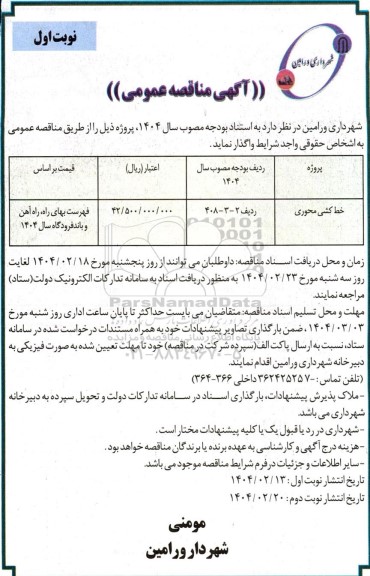 نوبت اول
شهرداری ورامین
((آگهی مناقصه عمومی))
شهرداری ورامین در نظر دارد به استناد بودجه مصوب سال ۱۴۰۴، پروژه ذیل را از طریق مناقصه عمومی
به اشخاص حقوقی واجد شرایط واگذار نماید.
پروژه | ردیف بودجه مصوب سال ۱۴۰۴ | اعتبار (ریال) | قیمت بر اساس
خط کشی محوری | ردیف ۲-۳-۴۰۸ | ۴۲/۵۰۰/۰۰۰/۰۰۰ | فهرست بهای راه، راه آهن و باند فرودگاه سال ۱۴۰۴
زمان و محل دریافت اسناد مناقصه: داوطلبان می توانند از روز پنجشنبه مورخ ۱۴۰۴/۰۲/۱۸ لغایت
روز سه شنبه مورخ ۱۴۰۴/۰۲/۲۳ به منظور دریافت اسناد به سامانه تدارکات الکترونیک دولت(ستاد)
مراجعه نمایند.
مهلت و محل تسلیم اسناد مناقصه: متقاضیان می بایست حداکثر تا پایان ساعت اداری روز شنبه مورخ
۱۴۰۴/۰۳/۰۳، ضمن بارگذاری تصاویر پیشنهادات خود به همراه مستندات درخواست شده در سامانه
ستاد، نسبت به ارسال پاکت الف(سپرده شرکت در مناقصه) خود تا مهلت تعیین شده به صورت فیزیکی به
دبیرخانه شهرداری ورامین اقدام نمایند.
(تلفن تماس: ۷-۳۶۲۴۲۵۲۵ داخلی ۳۶۶-۳۶۴)
-ملاک پذیرش پیشنهادات، بارگذاری اسناد در سامانه تدارکات دولت و تحویل سپرده به دبیرخانه
شهرداری می باشد.
-شهرداری در رد یا قبول یک یا کلیه پیشنهادات مختار است.
-هزینه درج آگهی و کارشناسی به عهده برنده یا برندگان مناقصه خواهد بود.
-سایر اطلاعات و جزئیات در فرم شرایط مناقصه موجود می باشد.
تاریخ انتشار نوبت اول: ۱۴۰۴/۰۲/۱۳
تاریخ انتشار نوبت دوم: ۱۴۰۴/۰۲/۲۰
مومنی
شهردار ورامین
ParsNamadData